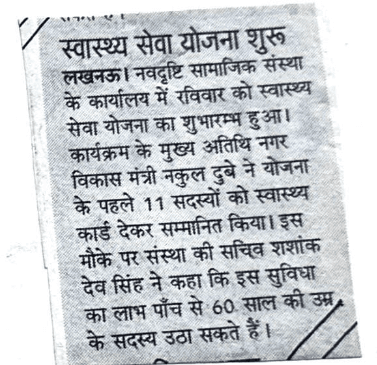 स्वास्थ्य सेवा योजना शुरू
लखनऊ। नवदृष्टि सामाजिक संस्था
के कार्यालय में रविवार को स्वास्थ्य
सेवा योजना का शुभारम्भ हुआ।
कार्यक्रम के मुख्य अतिथि नगर
विकास मंत्री नकुल दुबे ने योजना
के पहले 11 सदस्यों को स्वास्थ्य
कार्ड देकर सम्मानित किया। इस
मौके पर संस्था की सचिव शशांक
देव सिंह ने कहा कि इस सुविधा
का लाभ पाँच से 60 साल की उम्र
के सदस्य उठा सकते हैं।